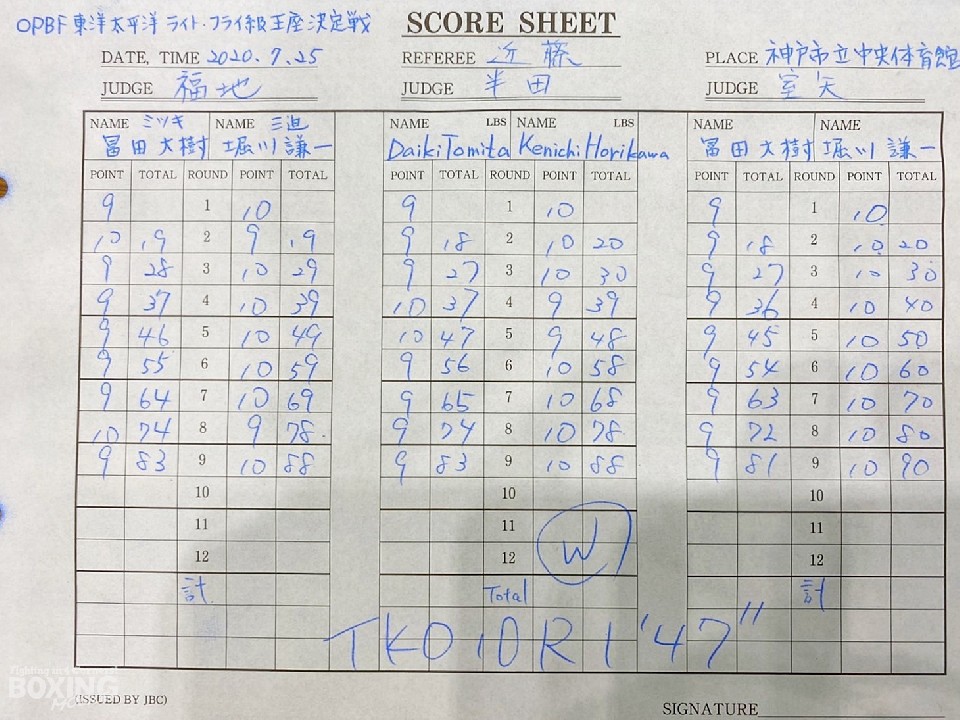 OPBF 東洋太平洋 ライト・フライ級王座決定戦 SCORE SHEET
DATE, TIME 2020.7.25 REFEREE 近藤 PLACE 神戸市立中央体育館
JUDGE 福地 JUDGE 半田 JUDGE 室矢
NAME ミツキ NAME 三迫 NAME LBS NAME LBS NAME NAME
冨田大樹 堀川謙一 Daiki Tomita Kenichi Horikawa 冨田大樹 堀川謙一
POINT TOTAL ROUND POINT TOTAL POINT TOTAL ROUND POINT TOTAL POINT TOTAL ROUND POINT TOTAL
9 1 10 9 1 10 9 1 10
10 19 2 9 19 9 18 2 10 20 9 18 2 10 20
9 28 3 10 29 9 27 3 10 30 9 27 3 10 30
9 37 4 10 39 10 37 4 9 39 9 36 4 10 40
9 46 5 10 49 10 47 5 9 48 9 45 5 10 50
9 55 6 10 59 9 56 6 10 58 9 54 6 10 60
9 64 7 10 69 9 65 7 10 68 9 63 7 10 70
10 74 8 9 78 9 74 8 10 78 9 72 8 10 80
9 83 9 10 88 9 83 9 10 88 9 81 9 10 90
10 10 10
11 11 11
12 12 W 12
計 Total 計
TKO 10R 1'47"
BOXING
(ISSUED BY JBC) SIGNATURE